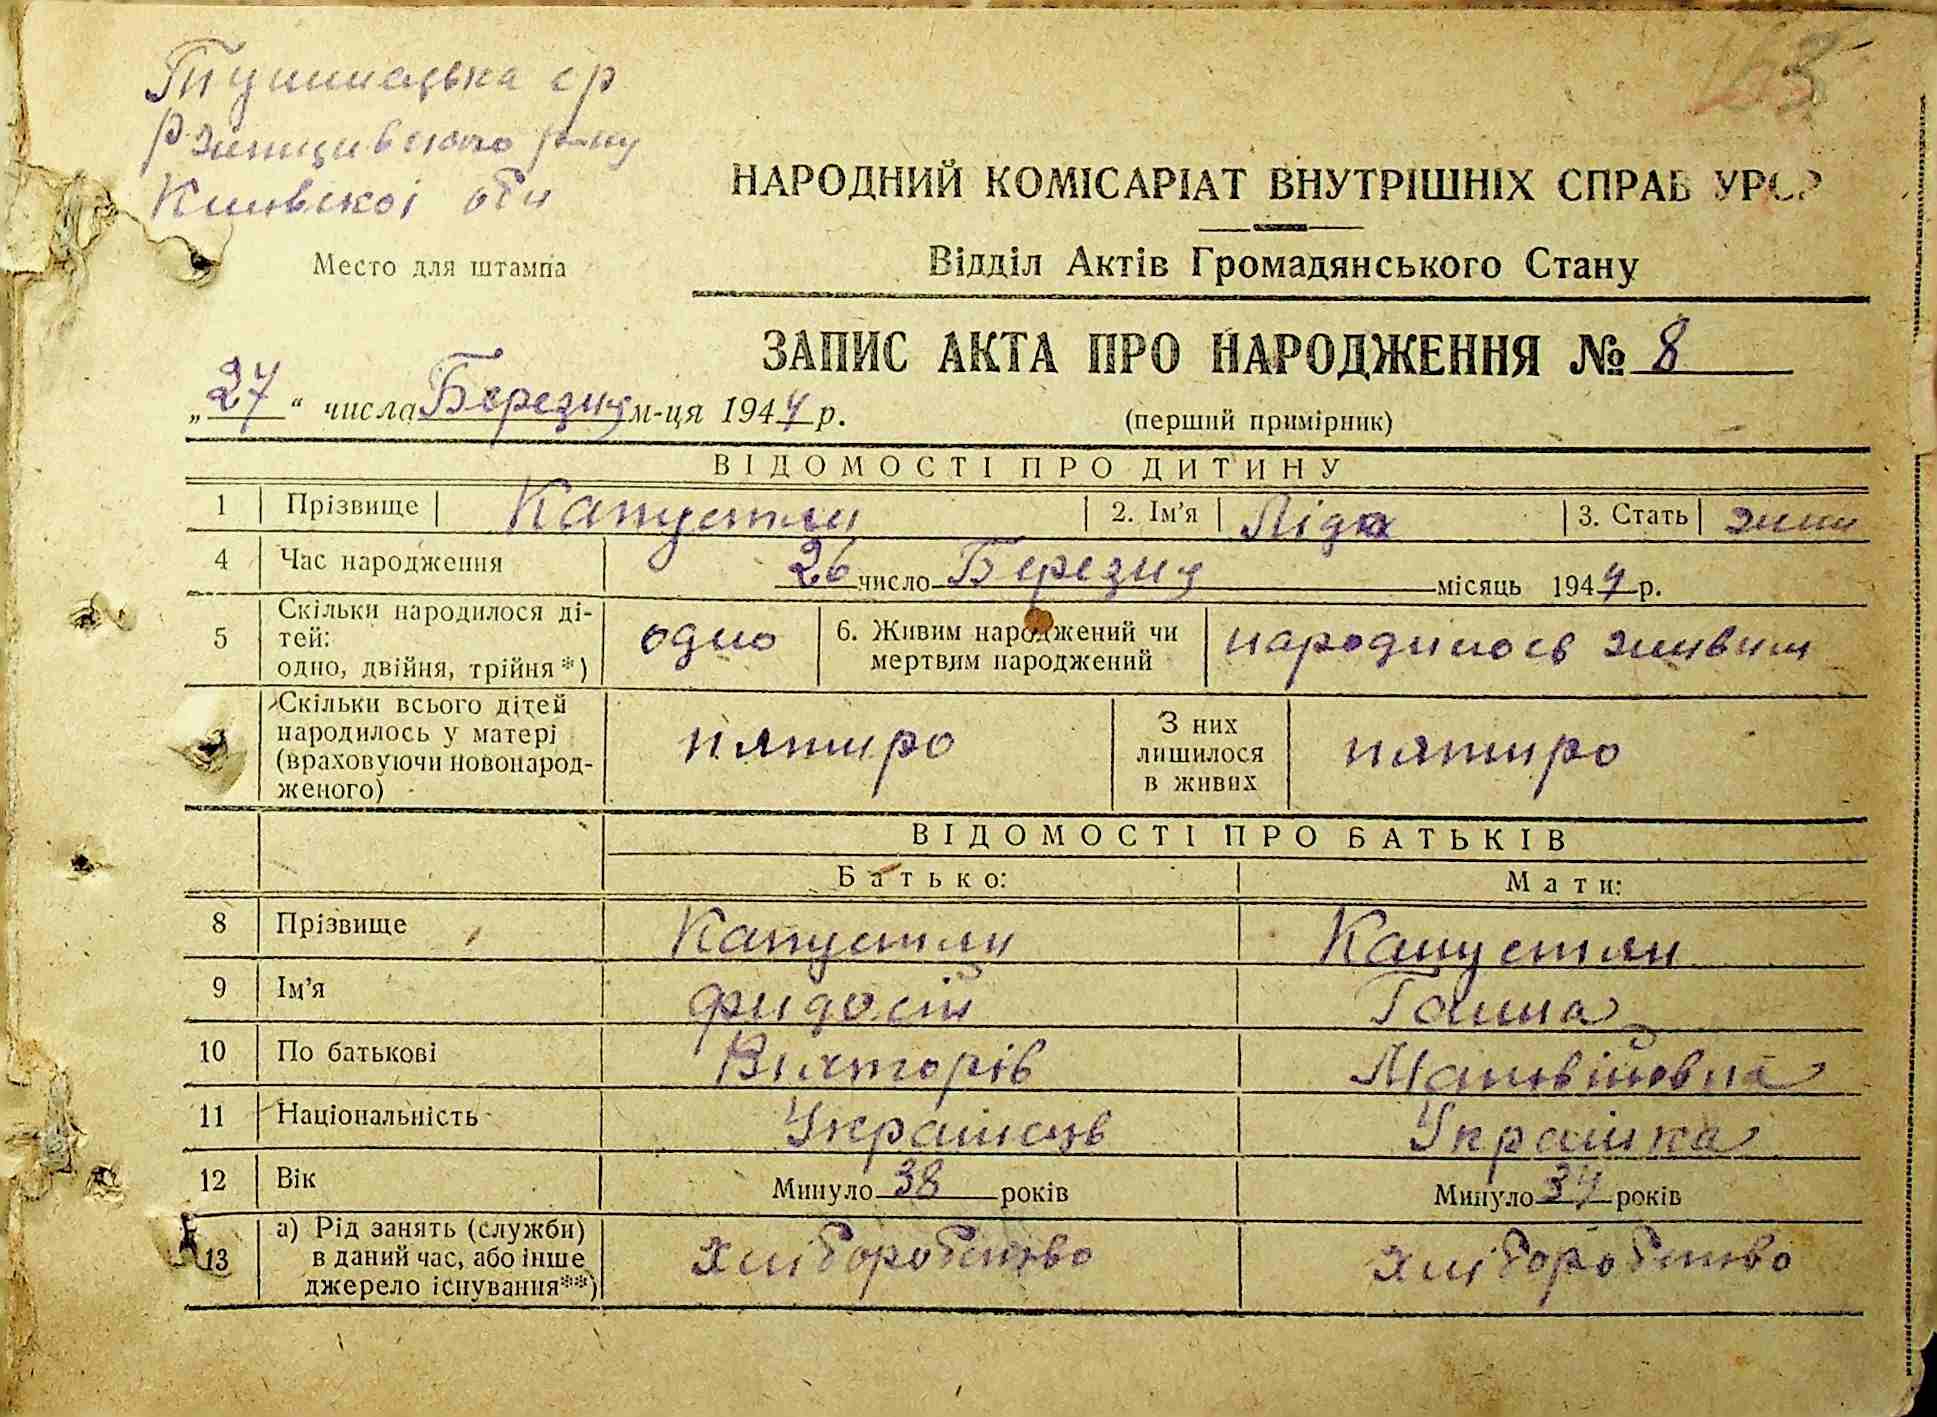 ср
Ржищивского р-ну
Київської обл
Место для штампа
НАРОДНИЙ КОМІСАРІАТ ВНУТРІШНІХ СПРАВ УРСР
Відділ Актів Громадянського Стану
ЗАПИС АКТА ПРО НАРОДЖЕННЯ № 8
„27“ числа Березня м-ця 1944 р.
(перший примірник)
ВІДОМОСТІ ПРО ДИТИНУ
1 Прізвище Капустян 2. Ім'я Ліда 3. Стать жин
4 Час народження 26 число Березня місяць 1944 р.
5 Скільки народилося ді-
тей:
одно, двійня, трійня*) одно 6. Живим народжений чи
мертвим народжений народилось живим
Скільки всього дітей
народилось у матері
(враховуючи новонарод-
женого) пятиро З них
лишилося
в живих пятиро
ВІДОМОСТІ ПРО БАТЬКІВ
Батько: Мати:
8 Прізвище Капустян Капустян
9 Ім'я Фидосій Ганна
10 По батькові Вікторів
11 Національність Українець Українка
12 Вік Минуло 38 років Минуло 34 років
13 а) Рід занять (служби)
в даний час, або інше
джерело існування**) хліборобство хліборобство